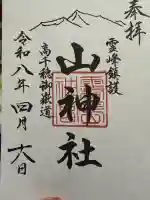 奉拝
霊峰鎮護
山神社
高千穂御嶽道
令和八年四月六日